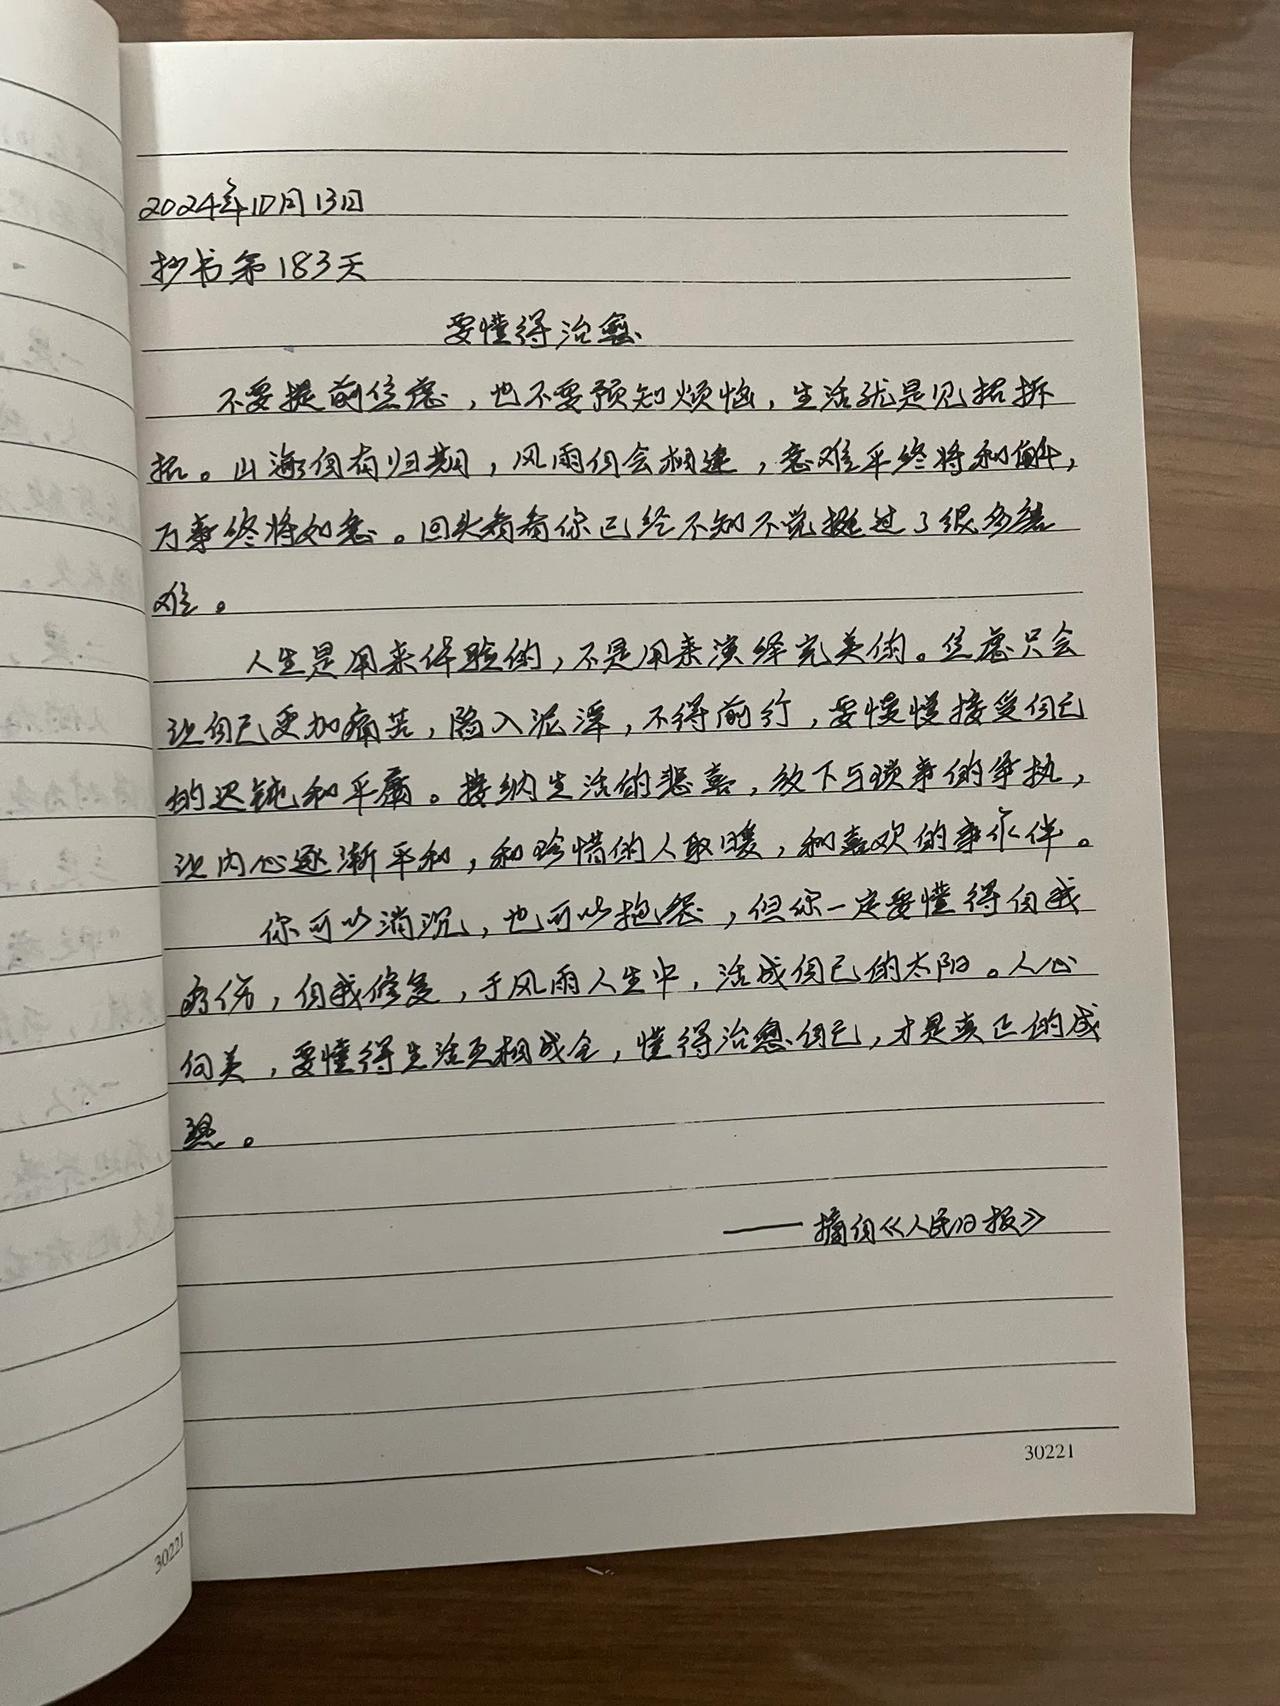 2024年10月13日
抄书第183天
要懂得治愈
不要提前焦虑，也不要预知烦恼，生活就是见招拆
招。山海自有归期，风雨自会相逢，意难平终将和解，
万事终将如意。回头看看你已经不知不觉挺过了很多苦
难。
人生是用来体验的，不是用来演绎完美的。焦虑只会
让自己更加痛苦，陷入泥泽，不得前行，要慢慢接受自己
的迟钝和平庸。接纳生活的悲喜，放下与琐事的争执，
让内心逐渐平和，和珍惜的人取暖，和喜欢的事作伴。
你可以消沉，也可以抱怨，但你一定要懂得自我
疗伤，自我修复，于风雨人生中，活成自己的太阳。人心
向美，要懂得生活互相成全，懂得治愈自己，才是真正的成
熟。
——摘自《人民日报》
30221
30221